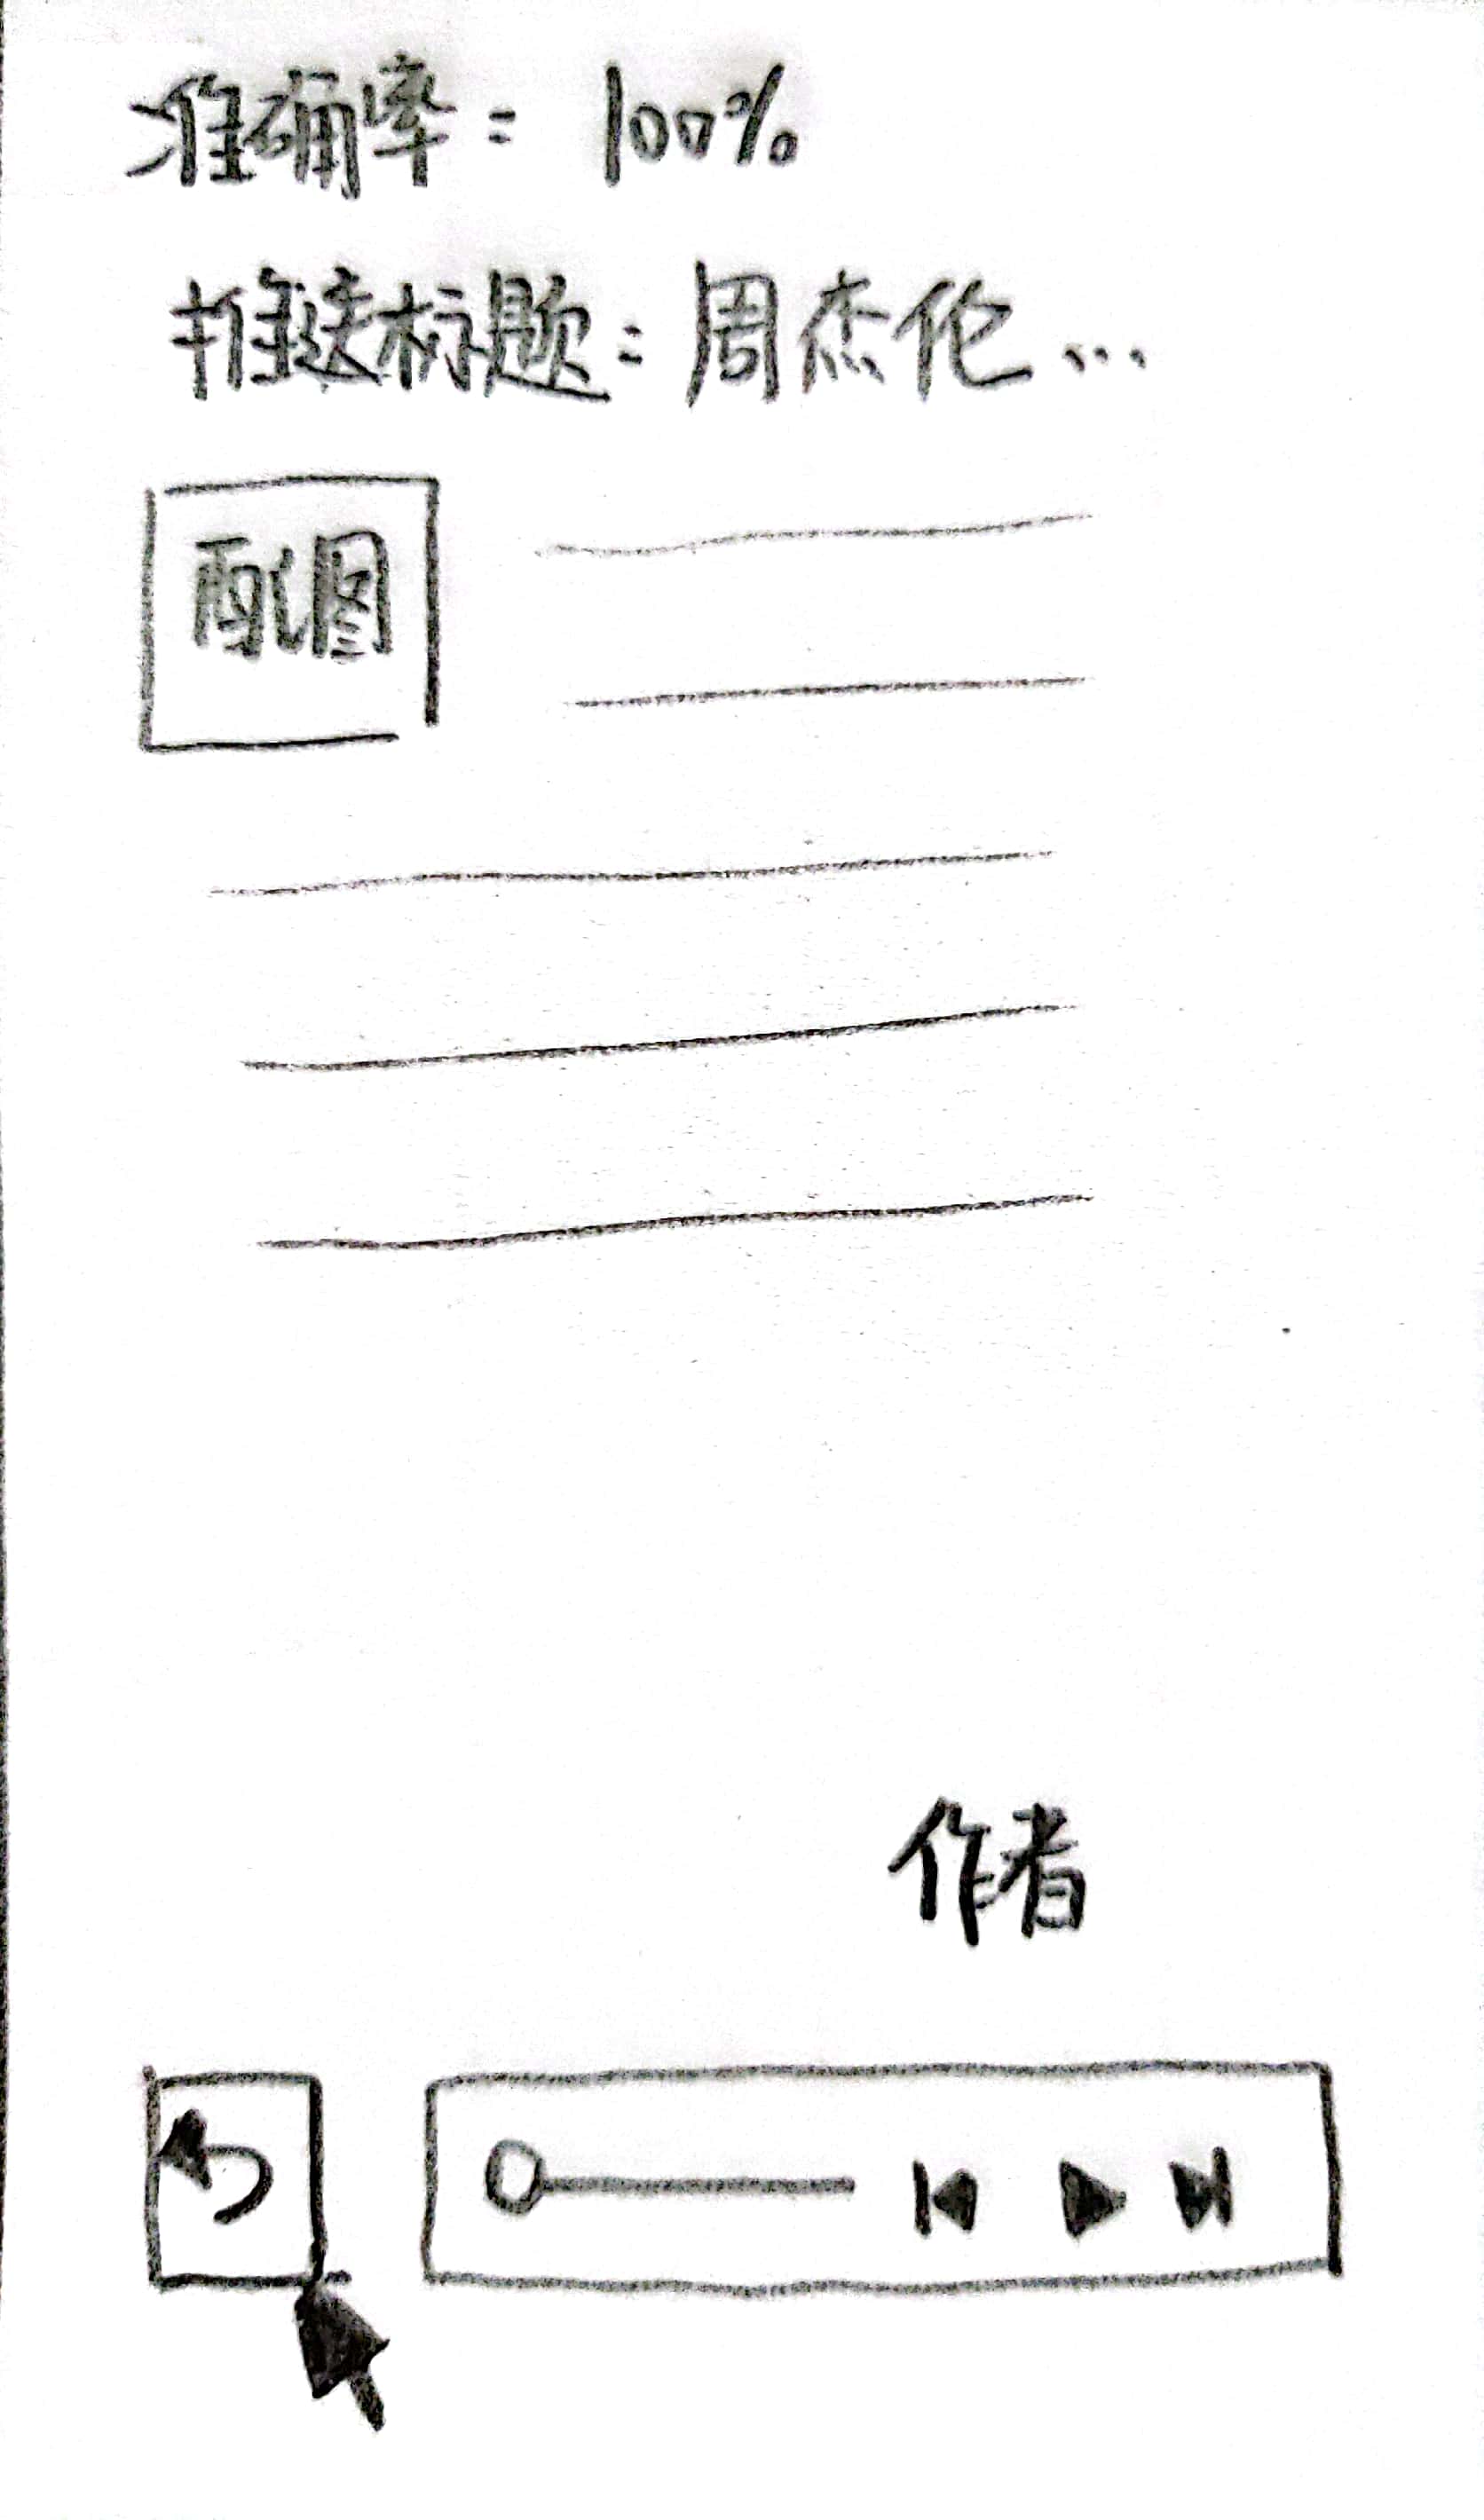 准确率: 100%
推送标题: 周杰伦...
配图
作者